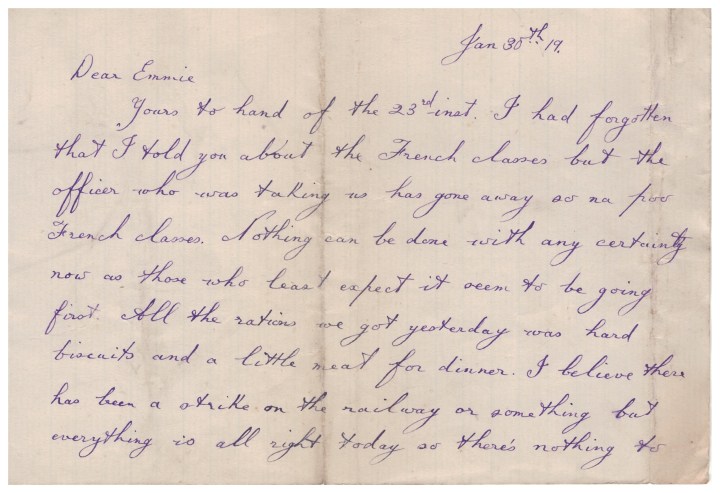 Jan 30th 19.
Dear Emmie
Yours to hand of the 23rd inst. I had forgotten
that I told you about the French classes but the
officer who was taking us has gone away so na poo
French classes. Nothing can be done with any certainty
now as those who least expect it seem to be going
first. All the rations we got yesterday was hard
biscuits and a little meat for dinner. I believe there
has been a strike on the railway or something but
everything is all right today so there's nothing to